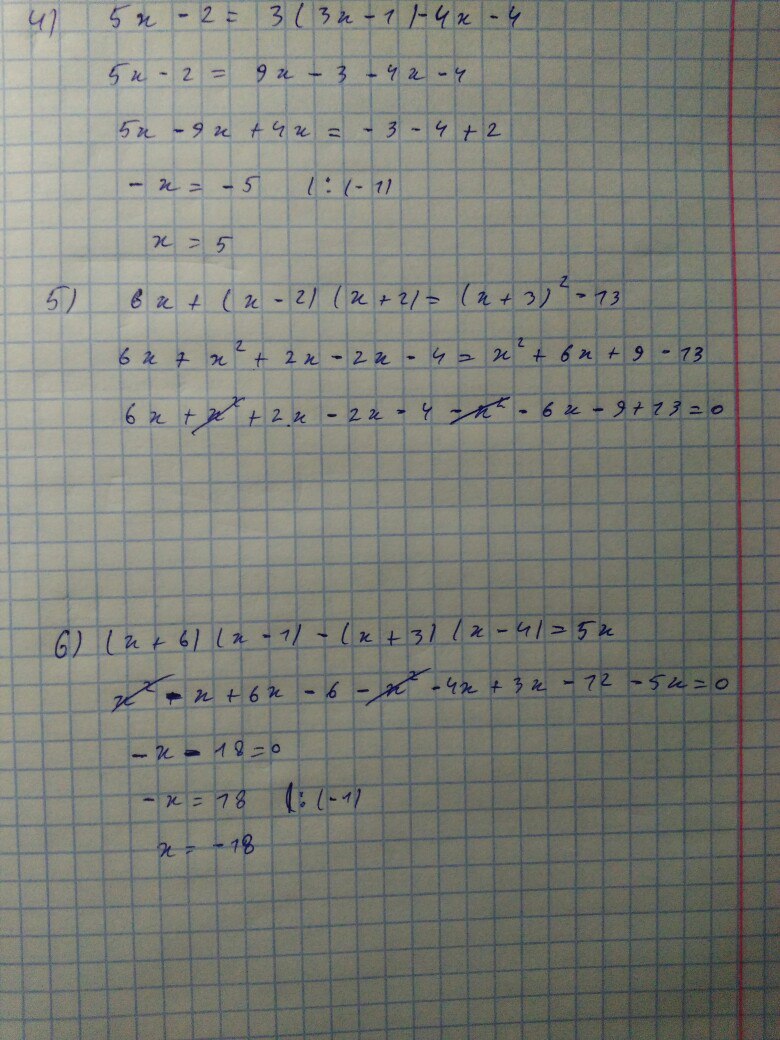 4) 5x - 2 = 3(3x - 1) - 4x - 4
5x - 2 = 9x - 3 - 4x - 4
5x - 9x + 4x = -3 - 4 + 2
-x = -5 |:(-1)
x = 5
5) 6x + (x - 2)(x + 2) = (x + 3)² - 13
6x + x² + 2x - 2x - 4 = x² + 6x + 9 - 13
6x + x² + 2x - 2x - 4 - x² - 6x - 9 + 13 = 0
6) (x + 6)(x - 1) - (x + 3)(x - 4) = 5x
x² - x + 6x - 6 - x² - 4x + 3x - 12 - 5x = 0
-x - 18 = 0
-x = 18 |:(-1)
x = -18